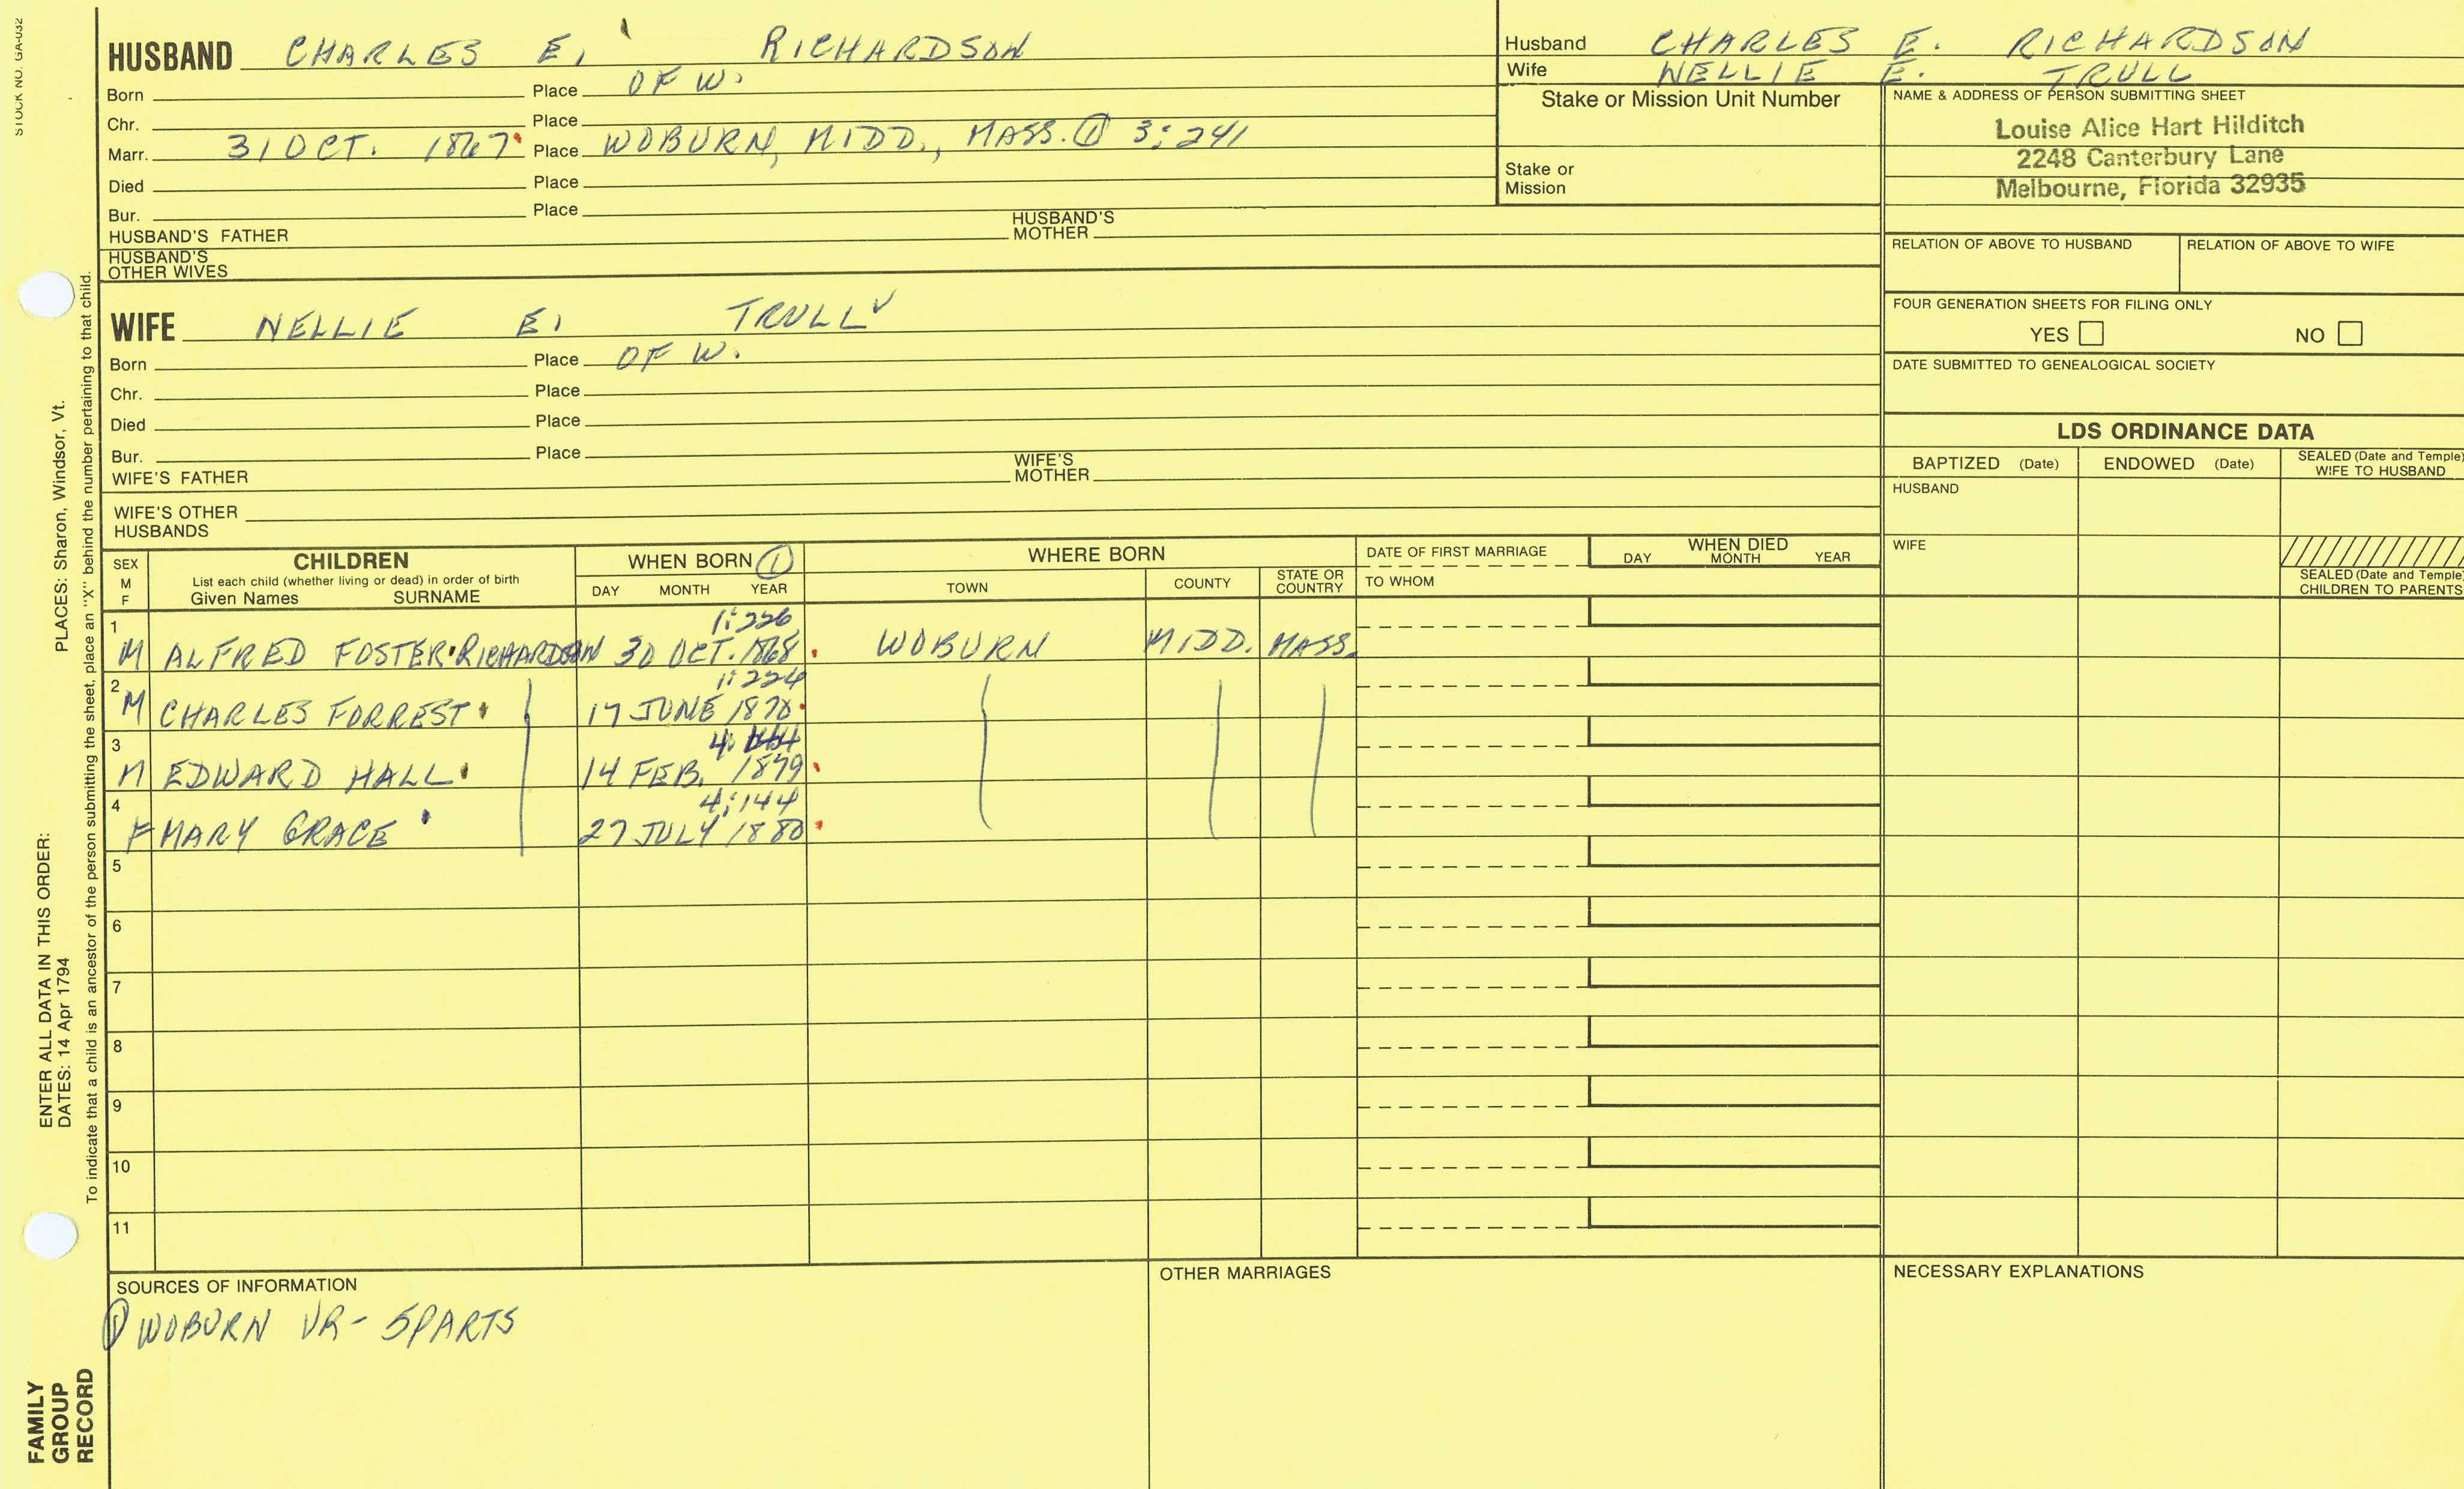 STOCK NO. GA-032
HUSBAND CHARLES E. RICHARDSON
Born Place OF W.
Chr. Place
Marr. 31 OCT. 1867 Place WOBURN, MIDD., MASS. ① 3:241
Died Place
Bur. Place
HUSBAND'S FATHER HUSBAND'S MOTHER
HUSBAND'S OTHER WIVES
WIFE NELLIE E. TRULL ✓
Born Place OF W.
Chr. Place
Died Place
Bur. Place
WIFE'S FATHER WIFE'S MOTHER
WIFE'S OTHER HUSBANDS
Husband CHARLES E. RICHARDSON
Wife NELLIE E. TRULL
Stake or Mission Unit Number
Stake or Mission
NAME & ADDRESS OF PERSON SUBMITTING SHEET
Louise Alice Hart Hilditch
2248 Canterbury Lane
Melbourne, Florida 32935
RELATION OF ABOVE TO HUSBAND RELATION OF ABOVE TO WIFE
FOUR GENERATION SHEETS FOR FILING ONLY
YES NO
DATE SUBMITTED TO GENEALOGICAL SOCIETY
LDS ORDINANCE DATA
BAPTIZED (Date) ENDOWED (Date) SEALED (Date and Temple) WIFE TO HUSBAND
HUSBAND
WIFE
SEALED (Date and Temple) CHILDREN TO PARENTS
SEX M F CHILDREN
List each child (whether living or dead) in order of birth
Given Names SURNAME
WHEN BORN ①
DAY MONTH YEAR
WHERE BORN
TOWN COUNTY STATE OR COUNTRY
DATE OF FIRST MARRIAGE
TO WHOM
WHEN DIED
DAY MONTH YEAR
1 1:226
M ALFRED FOSTER RICHARDSON 30 OCT. 1868 WOBURN MIDD. MASS.
2 1:224
M CHARLES FORREST 17 JUNE 1870
3 4:
M EDWARD HALL 14 FEB. 1879
4 4:144
F MARY GRACE 27 JULY 1880
5
6
7
8
9
10
11
SOURCES OF INFORMATION
① WOBURN VR- 5 PARTS
OTHER MARRIAGES
NECESSARY EXPLANATIONS
ENTER ALL DATA IN THIS ORDER:
DATES: 14 Apr 1794 PLACES: Sharon, Windsor, Vt.
To indicate that a child is an ancestor of the person submitting the sheet, place an "X" behind the number pertaining to that child.
FAMILY
GROUP
RECORD